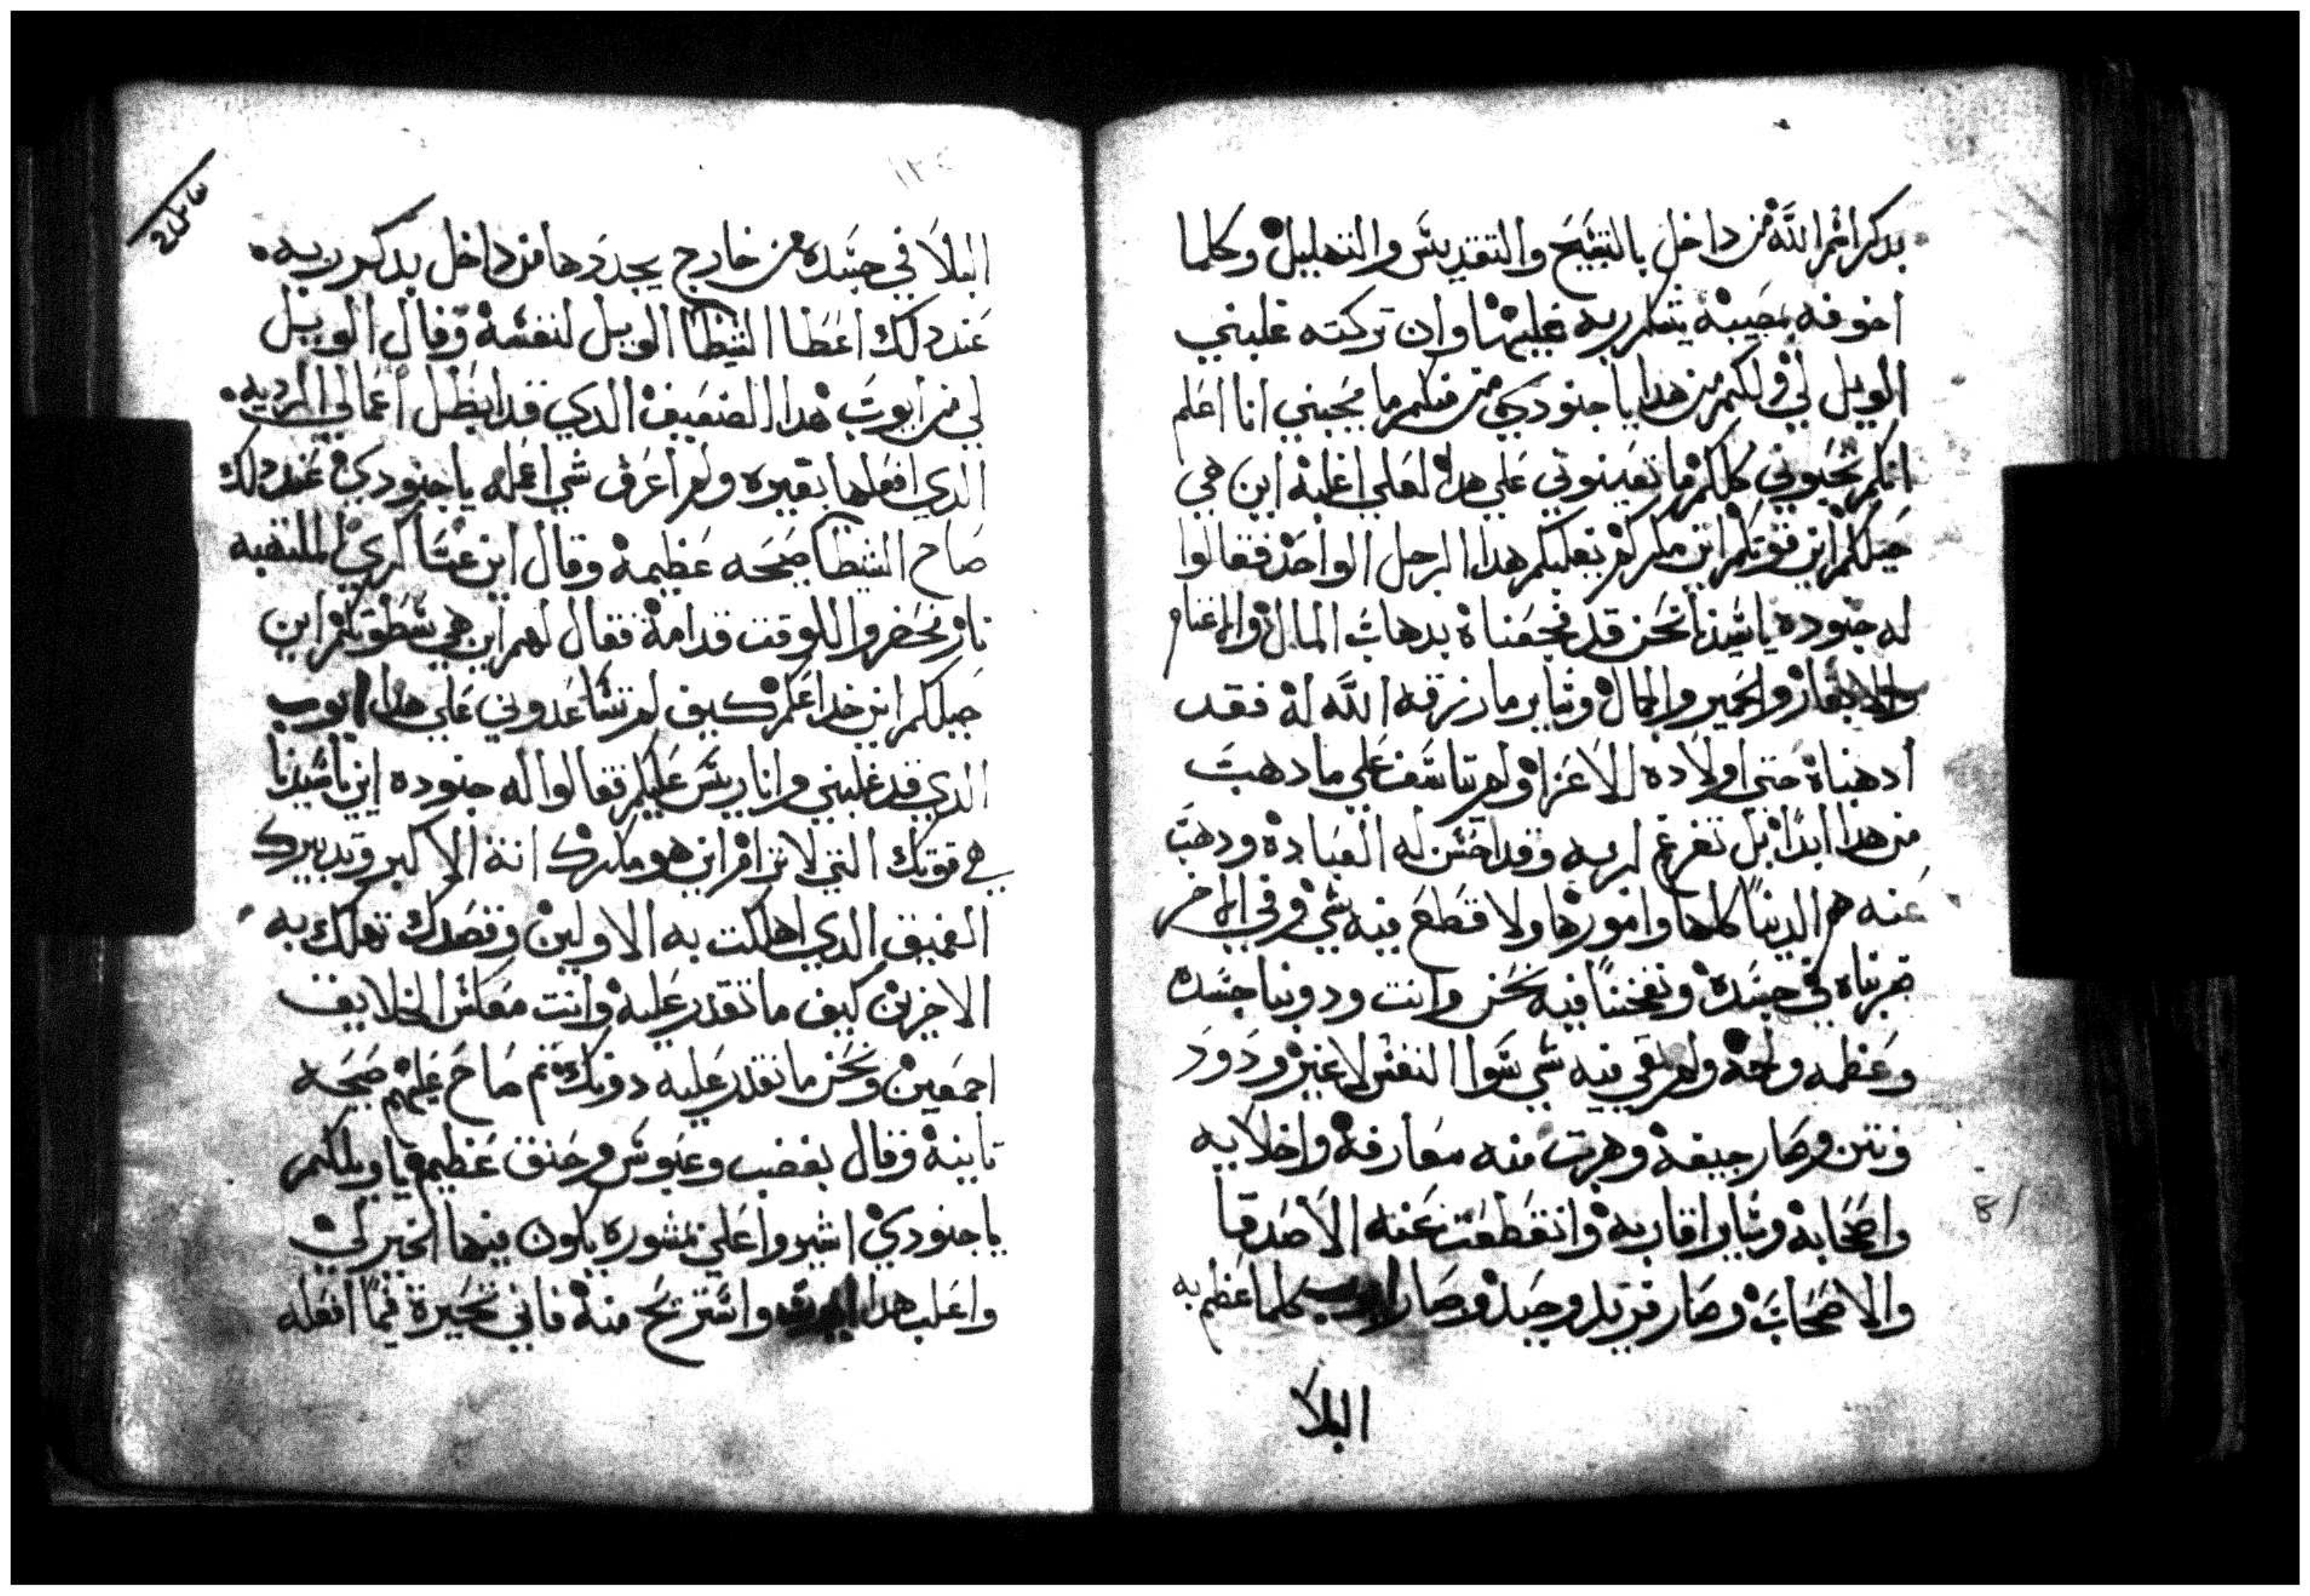 بدكر اسم الله من داخل بالتسبيح والتقديس والتهليل وكلما
اخوفه بمصيبه يشكر ربه عليها وان تركته غلبني
الويل لي ولكم من هدا يا جنودي من منكم ما يجبني انا اعلم
انكم تحبوني كلكم ما تعينوني علي هدا لعلي اغلبه اين هي
حيلكم اين قوتكم اين مكركم يغلبكم هدا الرجل الواحد فقالوا
له جنوده يا سيدنا نحن قد فجعناه بدهاب المال والاغنام
والابقار والحمير والجمال وساير ما رزقه الله له فقد
ادهبناه حتي اولاده الاعزا ولم يتاسف علي ما دهب
من هدا ابدًا بل تفرغ لربه وقد احسن له العباده ودهب
عنه هم الدنيا كلها وامورها ولا قطع فيه شي وفي الاخر
ضربناه في جسده ونفخنا فيه نحن وانت ودوبنا جسده
وعظمه ولحمه ولم بقي فيه شي سوا النفس لا غير ودود
ونتن وصار جيفه وهربت منه معارفه واخلايه
واصحابه وساير اقاربه وانقطعت عنه الاصدقا
والاصحاب وصار فريد وحيد وصار ايوب كلما عظم به
البلا
البلا في جسده من خارج يجددها من داخل بدكر ربه
عند دلك اعطا الشيطا الويل لنفسه وقال الويل
لي من ايوب هدا الضعيف الدي قد ابطل اعمالي الرديه
الدي افعلها بغيره ولم اعرف شي اعمله يا جنودي عند دلك
صاح الشيطا صيحه عظيمه وقال اين عساكري الملتهبه
نار فحضروا للوقت قدامه فقال لهم اين هي سطوتكم اين
حيلكم اين خداعكم كيف لم تساعدوني علي هدا ايوب
الدي قد غلبني وانا ريس عليكم فقالوا له جنوده اين يا سيدنا
هي قوتك التي لا ترام اين هو مكرك انته الاكبر وتدبيرك
العميق الدي اهلكت به الاولين وقصدك تهلك به
الاخرين كيف ما تقدر عليه وانت معكس الخلايق
اجمعين ونحن ما نقدر عليه دونك ثم صاح عليهم صيحه
تانيه وقال بغضب وعبوس وحنق عظيم يا ويلكم
يا جنودي اشيروا علي بمشوره يكون فيها الخير لي
واغلب هدا ايوب واستريح منه فاني تحيرة فيما افعله